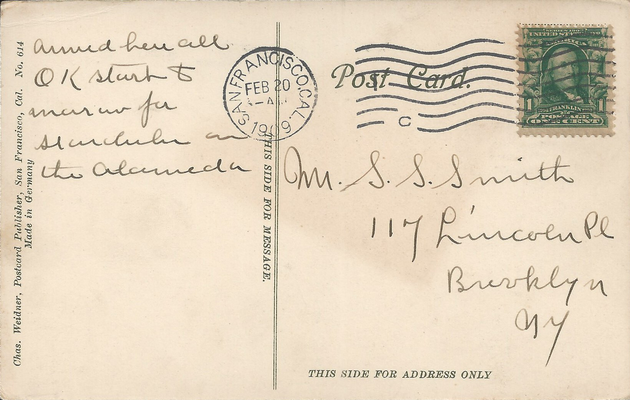 arrived here all
OK start to
morrow for
on
the Alameda
SAN FRANCISCO, CAL.
FEB 20
1909
C
Post Card.
UNITED STATES
1 FRANKLIN 1
POSTAGE
ONE CENT
M. S. S. Smith
117 Lincoln Pl
Brooklyn
NY
THIS SIDE FOR MESSAGE.
THIS SIDE FOR ADDRESS ONLY
Chas. Weidner, Postcard Publisher, San Francisco, Cal. No. 614
Made in Germany